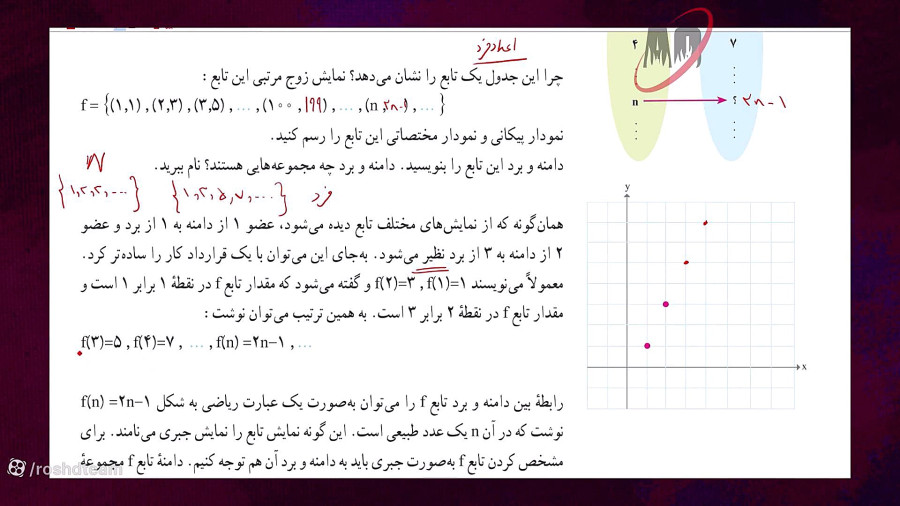 اعداد فرد
چرا این جدول یک تابع را نشان می‌دهد؟ نمایش زوج مرتبی این تابع :
f = {(۱,۱) , (۲,۳) , (۳,۵) , … , (۱۰۰ , ۱۹۹) , … , (n , ۲n-۱) , … }
نمودار پیکانی و نمودار مختصاتی این تابع را رسم کنید.
دامنه و برد این تابع را بنویسید. دامنه و برد چه مجموعه‌هایی هستند؟ نام ببرید.
N
{۱,۲,۳,...} {۱,۳,۵,۷,...} فرد
همان‌گونه که از نمایش‌های مختلف تابع دیده می‌شود، عضو ۱ از دامنه به ۱ از برد و عضو
۲ از دامنه به ۳ از برد نظیر می‌شود. به‌جای این می‌توان با یک قرارداد کار را ساده‌تر کرد.
معمولاً می‌نویسند f(۱)=۱ , f(۲)=۳ و گفته می‌شود که مقدار تابع f در نقطهٔ ۱ برابر ۱ است و
مقدار تابع f در نقطهٔ ۲ برابر ۳ است. به همین ترتیب می‌توان نوشت :
f(۳)=۵ , f(۴)=۷ , … , f(n) =۲n−۱ , …
رابطهٔ بین دامنه و برد تابع f را می‌توان به‌صورت یک عبارت ریاضی به شکل f(n) =۲n−۱
نوشت که در آن n یک عدد طبیعی است. این گونه نمایش تابع را نمایش جبری می‌نامند. برای
مشخص کردن تابع f به‌صورت جبری باید به دامنه و برد آن هم توجه کنیم. دامنهٔ تابع f مجموعهٔ
۴ ۷
n ؟ ۲n-۱
y
x
/roshdteam